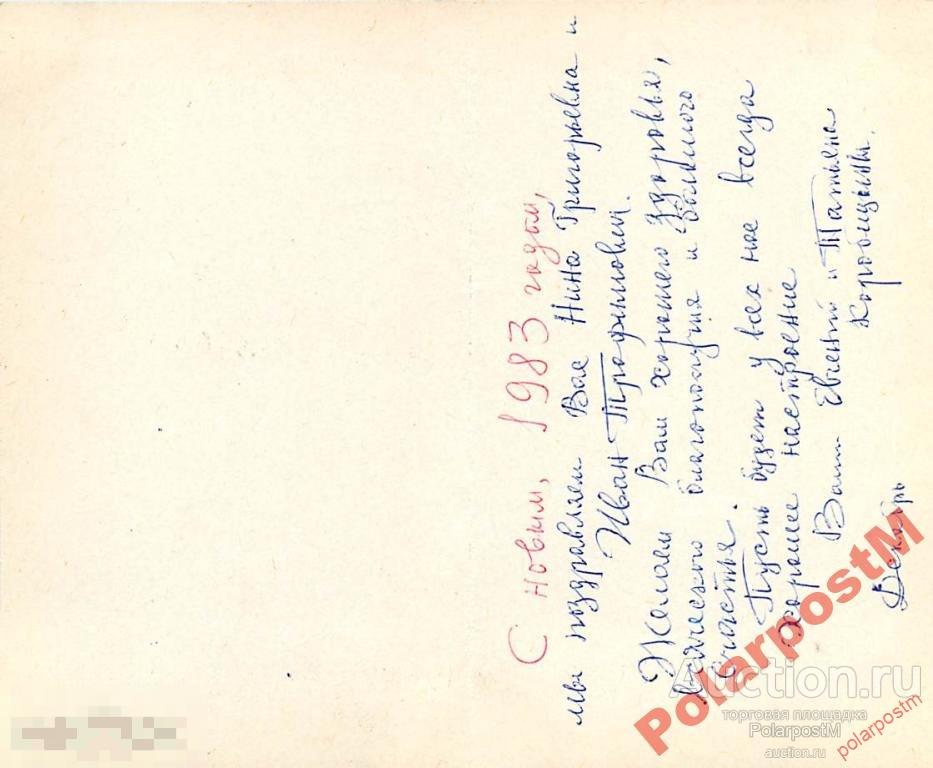 С новым, 1983 годом,
мы поздравляем Вас Нина Григорьевна и
Иван Трофимович.
Желаем Вам хорошего здоровья,
всяческого благополучия и большого
счастья.
Пусть будет у всех нас всегда
хорошее настроение
Ваши Евгений и Татьяна
Коробицыны.
Декабрь
PolarpostM
Auction.ru
торговая площадка
PolarpostM
auction.ru
polarpostm